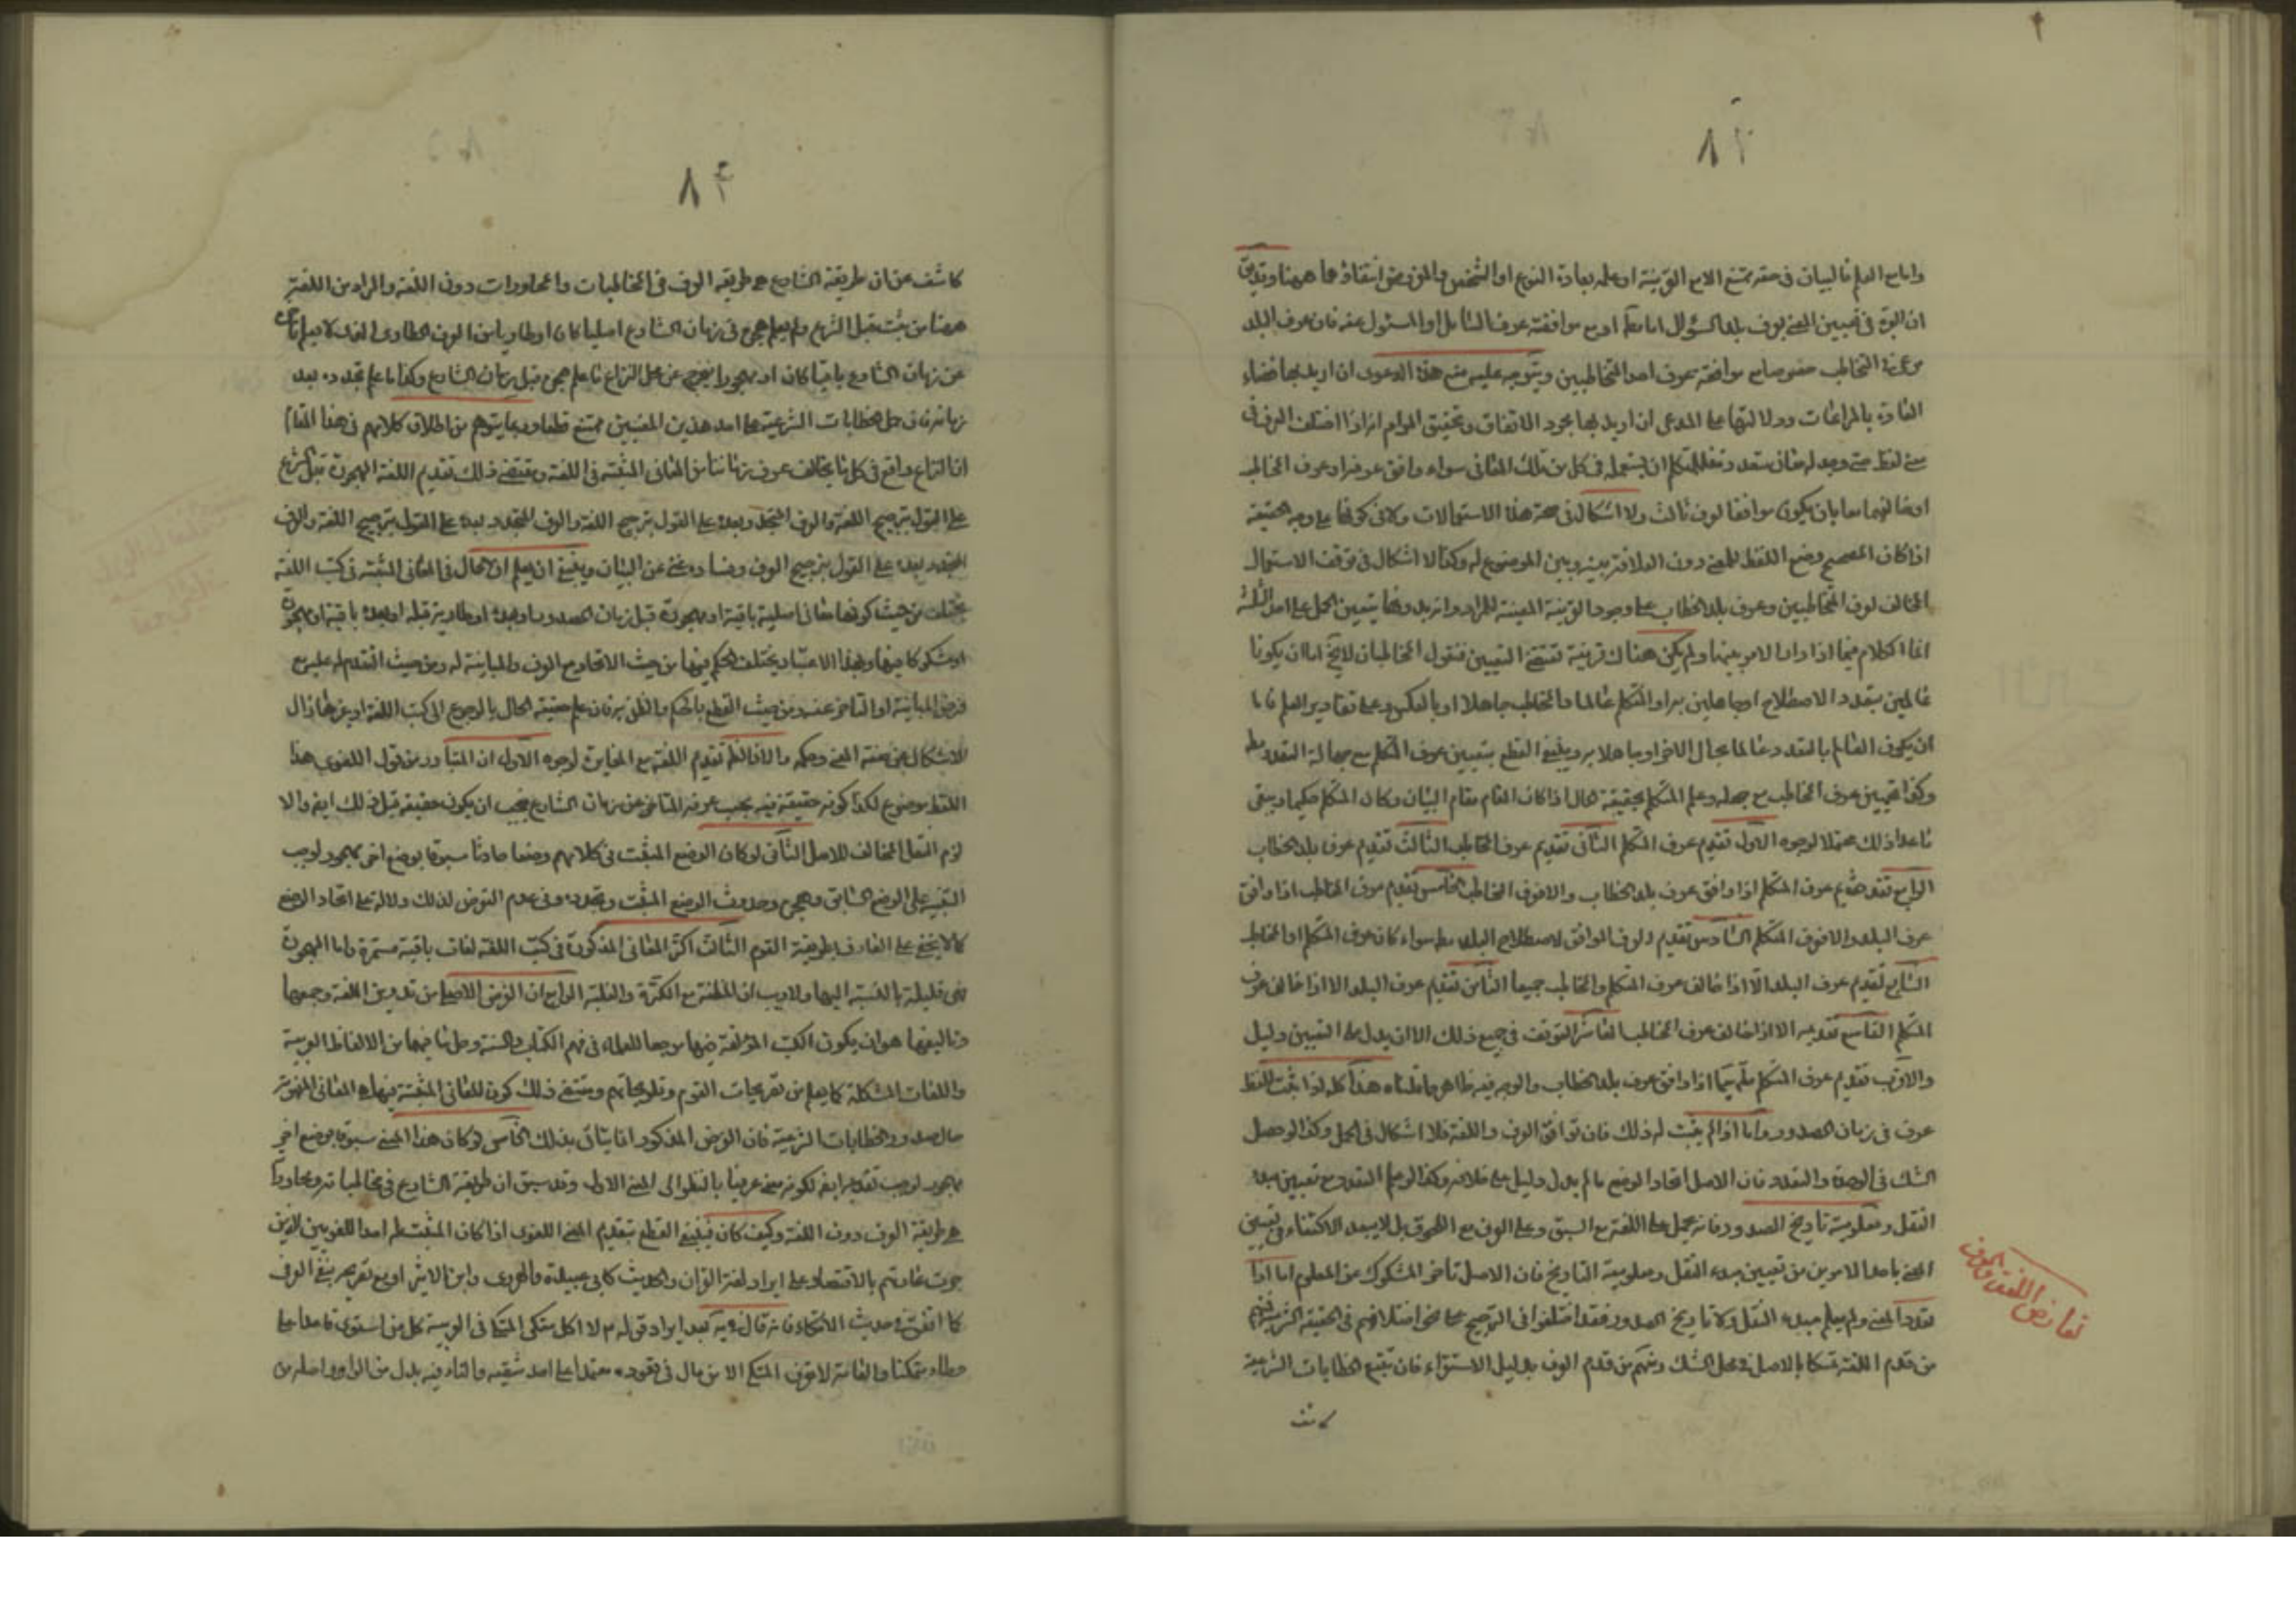 ٨٣
واما مع العلم بالبيان في حقه يمتنع الامع القرينة او علمه بعادة النوع او الشخص والمفروض انتفاؤهما ههنا وتدقيق
ان العبرة في تعيين المعنى بعرف بلد السؤال اما مطلقا او مع موافقته عرف السائل او المسئول عنه فان عرف البلد
التخاطب خصوصا مع موافقته بعرف احد المتخاطبين ويتوجه عليه منع هذه الدعوى ان اريد بها قضاء
العادة بالمراعات ودلالتها على المدعى ان اريد بها مجرد الاتفاق وتحقيق المرام انه اذا اختلف العرف في
معنى لفظ حتى وجد له معان متعدد فللمتكلم ان يستعمله في كل من تلك المعاني سواء وافق عرفه او عرف المخاطب
او خالفهما معا بان يكون موافقا لعرف ثالث ولا اشكال في صحة هذه الاستعمالات ولا في كونها على وجه الحقيقة
اذا كان المصحح وضع اللفظ للمعنى دون العلاقة بينه وبين الموضوع له وكذا لا اشكال في توقف الاستعمال
المخالف لعرف المتخاطبين وعرف بلد الخطاب على وجود القرينة المعينة للمراد وانه بدونها يتعين الحمل على احد الثلثة
انما الكلام فيما اذا دار الامر بينها ولم يكن هناك قرينة تقتضي التعيين فنقول المخاطبان لا يخ اما ان يكونا
عالمين بتعدد الاصطلاح او جاهلين به او المتكلم عالما والمخاطب جاهلا او بالعكس وعلى تقادير العلم فاما
ان يكون العالم بالتعدد عالما بحال الاخر او جاهلا به وينبغي القطع بتعيين عرف المتكلم مع جهالة التعدد مط
وكذا تعيين عرف المخاطب مع جهله وعلم المتكلم بحقيقة الحال اذا كان المقام مقام البيان وكان المتكلم حكيما ويبقى
ما عدا ذلك محتملا لوجوه الاول تقديم عرف المتكلم الثاني تقديم عرف المخاطب الثالث تقديم عرف بلد الخطاب
الرابع تقديم عرف المتكلم اذا وافق عرف بلد الخطاب والا فعرف المخاطب الخامس تقديم عرف المخاطب اذا وافق
عرف البلد والا فعرف المتكلم السادس تقديم العرف الموافق لاصطلاح البلد مط سواء كان عرف المتكلم او المخاطب
السابع تقديم عرف البلد الا اذا خالف عرف المتكلم والمخاطب جميعا الثامن تقديم عرف البلد الا اذا خالف عرف
المتكلم التاسع تقديمه الا اذا خالف عرف المخاطب العاشر التوقف في جميع ذلك الا ان يدل على التعيين دليل
والاقرب تقديم عرف المتكلم سيما اذا وافق عرف بلد الخطاب والوجه فيه ظاهر مما قلناه هذا كله اذا ثبت للفظ
عرف في زمان الصدور واما اذا لم يثبت له ذلك فان توافق العرف واللغة فلا اشكال في الحمل وكذا لو حصل
الشك في الوحدة والتعدد فان الاصل اتحاد الوضع ما لم يدل دليل على خلافه وكذا لو علم التعدد مع تعيين مبدء
النقل ومعلومية تاريخ الصدور فانه يحمل على اللغة مع السبق وعلى العرف مع اللحوق بل لا يبعد الاكتفاء في تعيين
المعنى باحد الامرين من تعيين مبدء النقل ومعلومية التاريخ فان الاصل تاخر المشكوك عن المعلوم اما اذا
تعدد المعنى ولم يعلم مبدء النقل ولا تاريخ الصدور فقد اختلفوا في الترجيح على نحو اختلافهم في الحقيقة الشرعية فمنهم
من قدم اللغة تمسكا بالاصل في محل الشك ومنهم من قدم العرف بدليل الاستقراء فان تتبع الخطابات الشرعية
تعارض اللغة والعرف
كاشف
٨٤
كاشف عن ان طريقة الشارع هو طريقة العرف في المخاطبات والمحاورات دون اللغة والمراد من اللغة
ههنا من ثبت قبل الشرع ولم يعلم هجره في زمان الشارع اصليا كان او طاريا من العرف الطارى المعنى لا يعلم تاخره
عن زمان الشارع باقيا كان او مهجورا فيخرج عن محل النزاع ما علم هجره قبل زمان الشارع وكذا ما علم تجدده بعد
زمانه فان حمل خطابات الشرعية على احد هذين المعنيين ممتنع قطعا وربما يتوهم من اطلاق كلامهم في هذا المقام
ان النزاع واقع في كل ما يخالف عرف زماننا من المعاني المثبتة في اللغة ويقتضي ذلك تقديم اللغة المهجورة قبل الشرع
على القول بترجيح اللغة والعرف المتجدد بعده على القول بترجيح العرف
المتجدد بعده على القول بترجيح العرف وفساده غني عن البيان وينبغي ان يعلم ان الحال في المعاني المثبتة في كتب اللغة
يختلف من حيث كونها معاني اصلية باقية او مهجورة قبل زمان الصدور او بعده او طارية قبله او بعده باقية او مهجورة
او مشكوكا فيها وبهذا الاعتبار يختلف الحكم فيها من حيث الاتحاد مع العرف والمباينة له ومن حيث التقدم له عليه مع
فرض المباينة او التاخر عنه ومن حيث القطع بالحكم والظن به فان علم حقيقة الحال بالرجوع الى كتب اللغة او غيرها زال
الاشكال عن حقيقة المعنى وحكمه والا فالظ تقديم اللغة مع المغايرة لوجوه الاول ان المتبادر من قول اللغوي هذا
اللفظ موضوع لكذا كونه حقيقة فيه بحسب عرفه المتاخر عن زمان الشارع فيجب ان يكون حقيقة قبل ذلك ايضا والا
لزم النقل المخالف للاصل الثاني لو كان الوضع المثبت في كلامهم وضعا حادثا مسبوقا بوضع اخر مهجور لوجب
التنبيه على الوضع السابق وهجره وحدوث الوضع المثبت وتجدده وفي عدم التعرض لذلك دلالة على اتحاد الوضع
كما لا يخفى على العارف بطريقة القوم الثالث اكثر المعاني المذكورة في كتب اللغة لغات باقية مستمرة واما المهجورة
فهي قليلة بالنسبة اليها ولا ريب ان المظنة مع الكثرة والغلبة الرابع ان الغرض الاصلي من تدوين اللغة وجمعها
وتاليفها هو ان يكون الكتب المؤلفة فيها مرجعا للعلماء في فهم الكتاب والسنة وحل ما فيهما من الالفاظ الغريبة
واللغات المشكلة كما يعلم من تصريحات القوم وتلويحاتهم ومقتضى ذلك كون المعاني المثبتة فيها هي المعاني المفهومة
حال صدور الخطابات الشرعية فان الغرض المذكور انما يتاتى بذلك الخامس لو كان هذا المعنى مسبوقا بوضع اخر
مهجور لوجب تقديمه ايضا لكونه معنى عرفيا بالنظر الى المعنى الاول وقد سبق ان طريقة الشارع في مخاطباته ومحاوراته
هو طريقة العرف دون اللغة وكيف كان فينبغي القطع بتقديم المعنى اللغوي اذا كان المثبت له احد اللغويين الذين
جرت عادتهم بالاقتصار على ايراد لغة القران والحديث كابي عبيدة والهروي وابن الاثير او مع تصريحه بنفي العرف
كما اتفق في حديث الاتكاء فانه قال فيه بعد ايراد قوله ص لا اكل متكئا المتكي في العربية كل من استوى قاعدا على
وطاء متمكنا والعامة لا تعرف المتكي الا من مال في قعوده معتمدا على احد شقيه والتاء فيه بدل من الواو واصله من